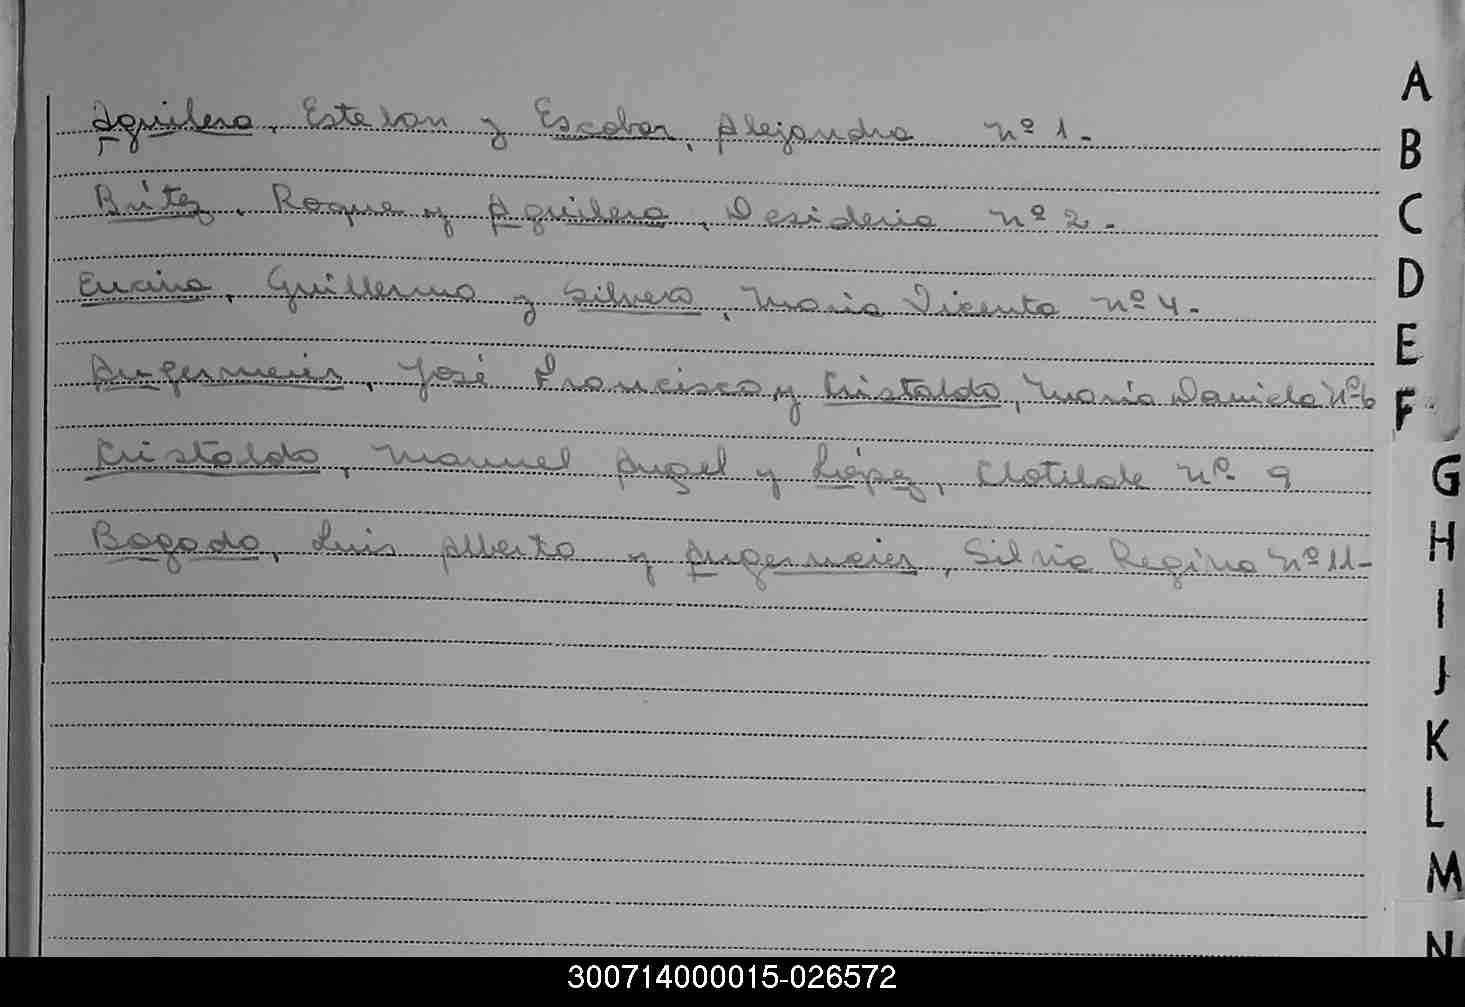 Aguilera, Esteban y Escobar, Alejandra nº 1.-
Brítez, Roque y Aguilera, Desideria nº 2.-
Encina, Guillermo y Silvera, Maria Vicenta nº 4.-
Angermeier, José Francisco y Cristaldo, Maria Daniela Nº 6
Cristaldo, Manuel Angel y López, Clotilde nº 9
Bogado, Luis Alberto y Angermeier, Silvia Regina nº 11-
A
B
C
D
E
F
G
H
I
J
K
L
M
N
300714000015-026572